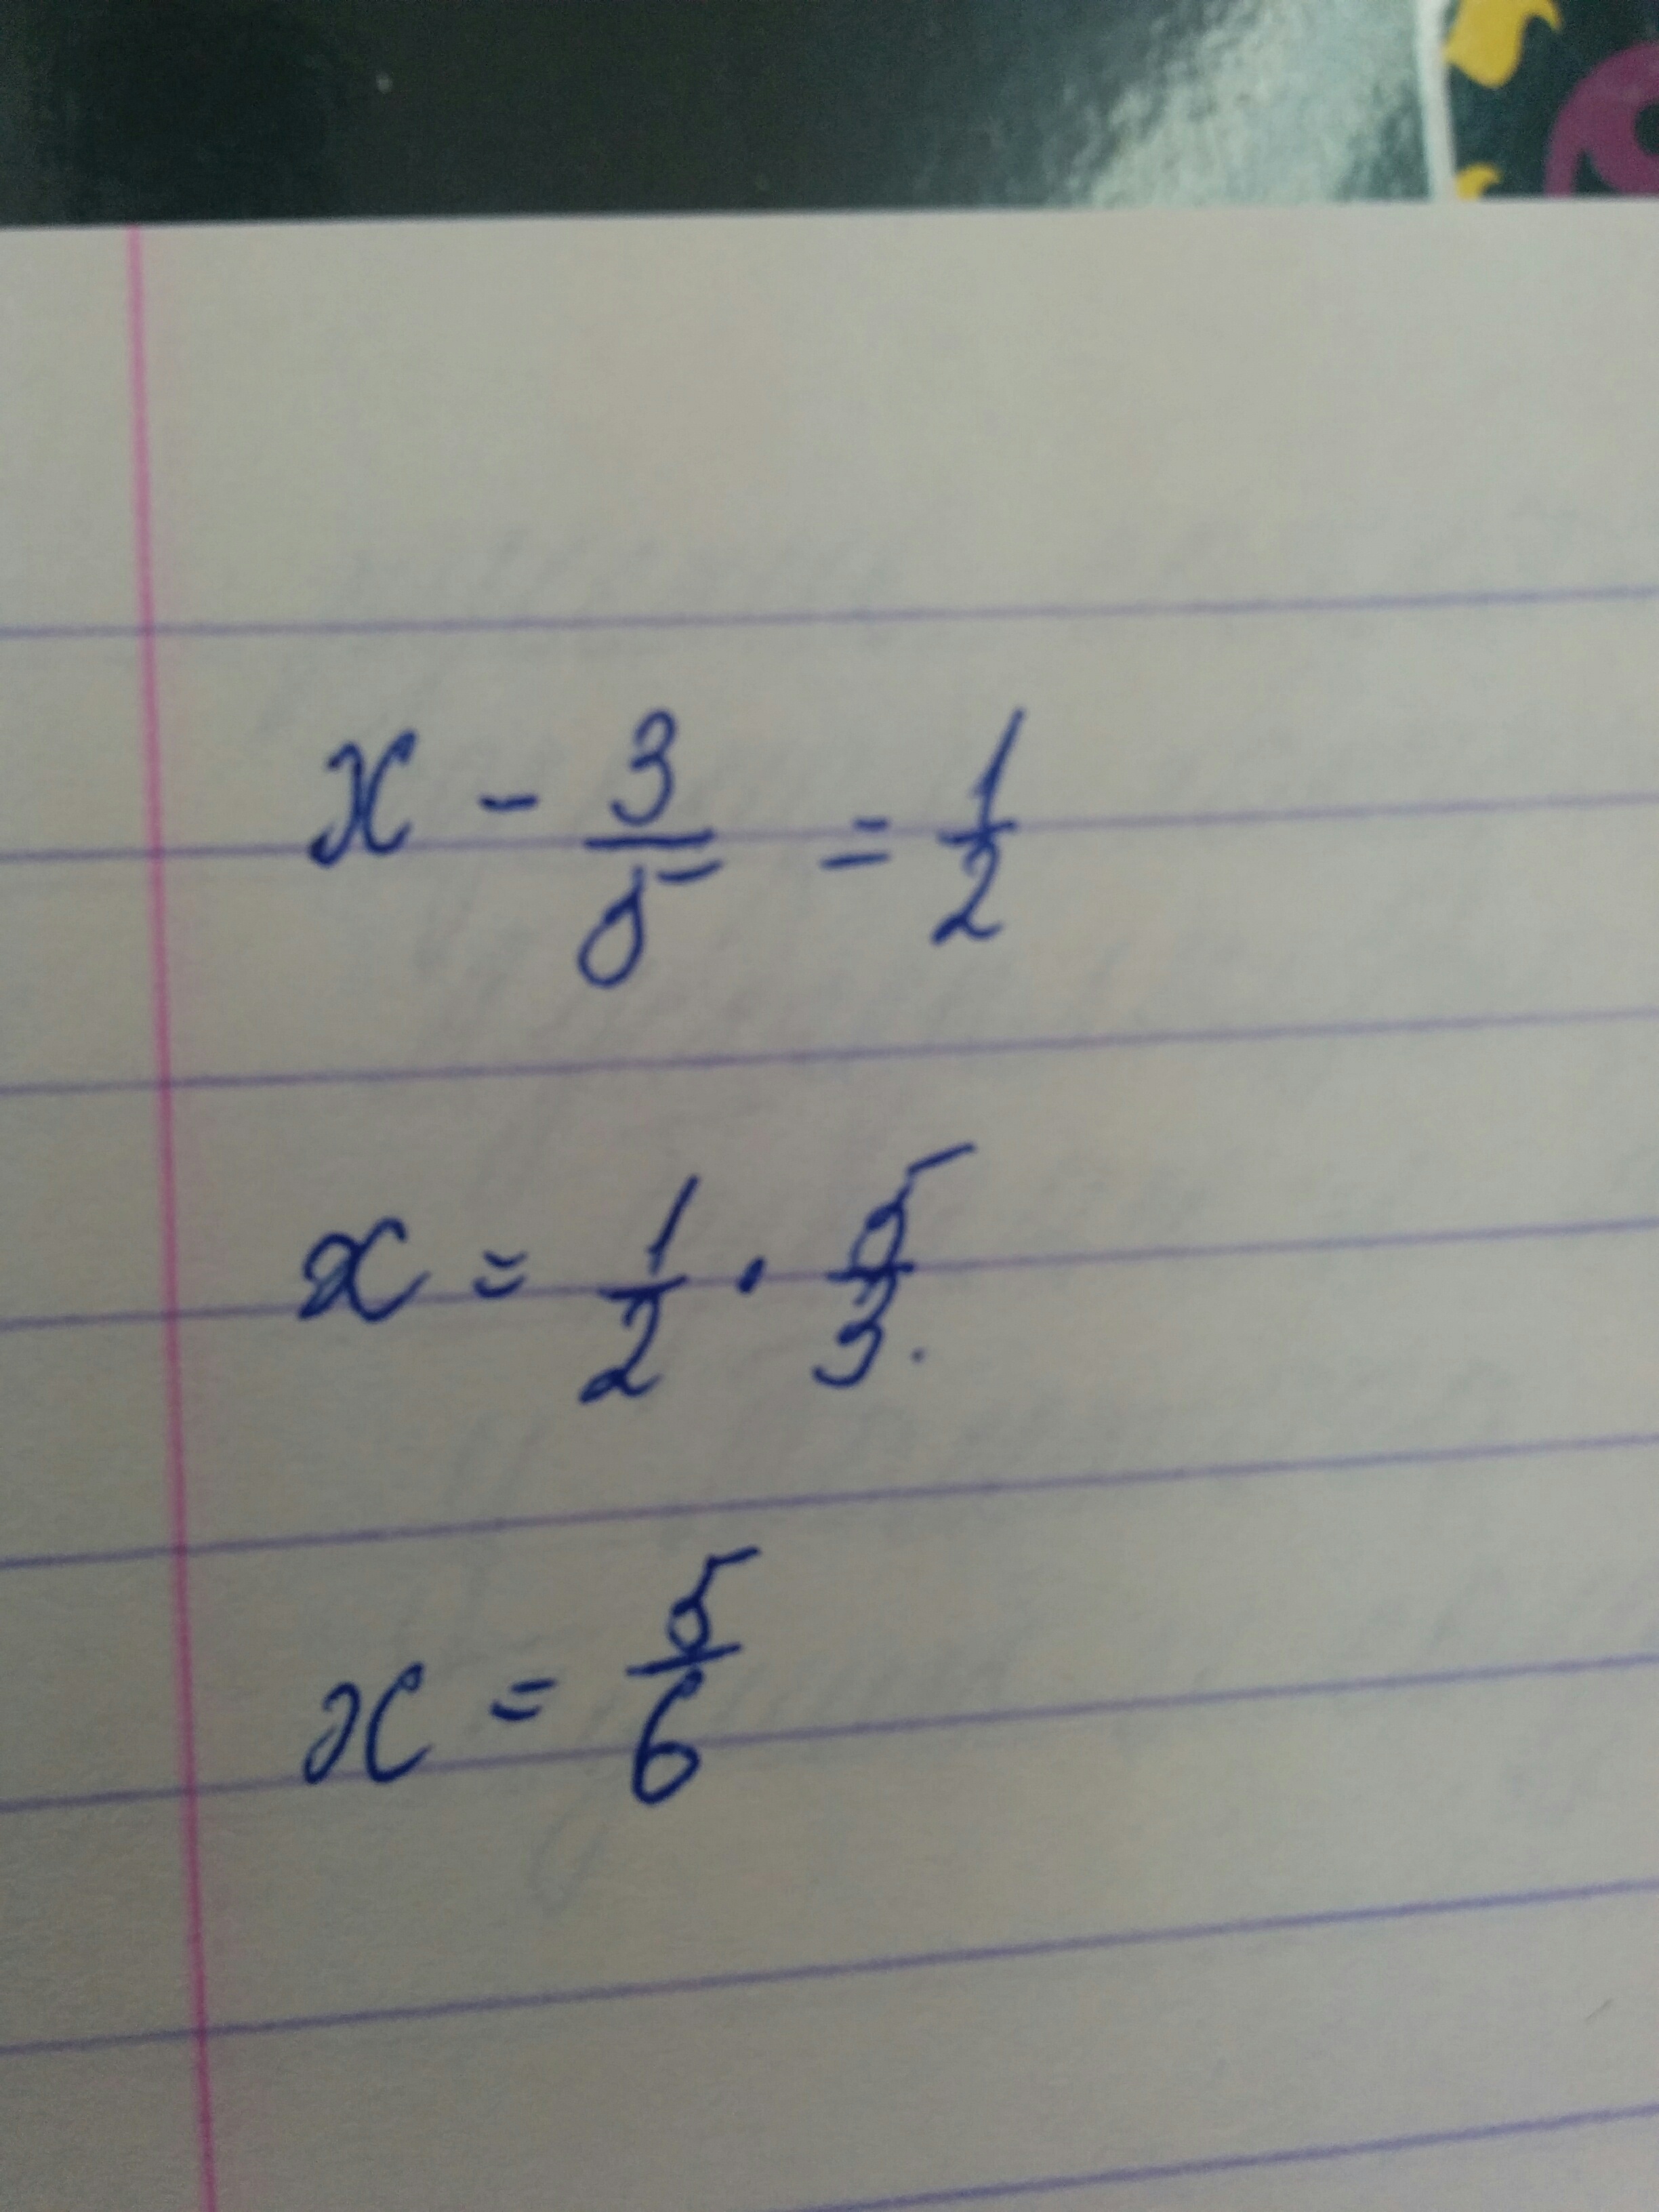 x - 3/5 = 1/2
x = 1/2 · 5/3.
x = 5/6